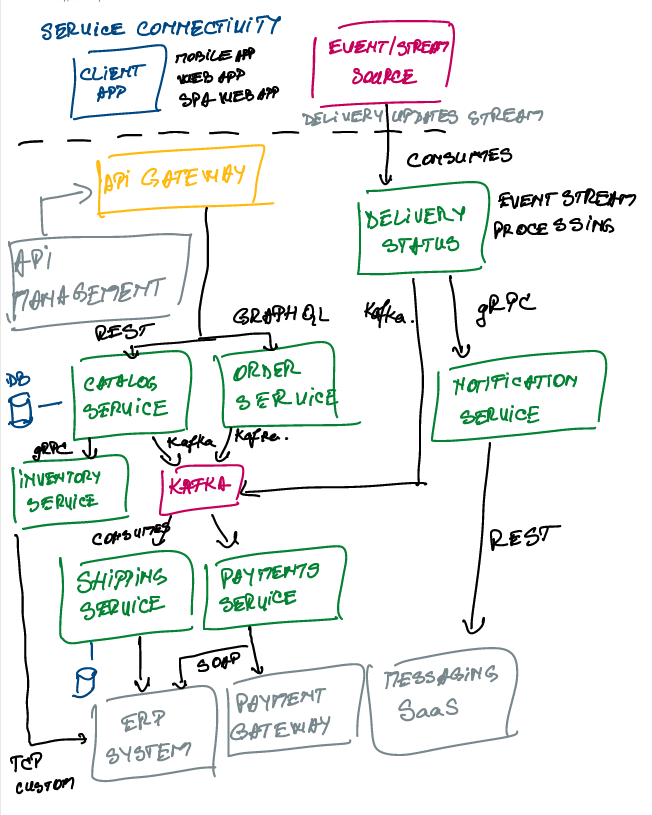 SERVICE CONNECTIVITY
CLIENT
APP
MOBILE APP
WEB APP
SPA WEB APP
EVENT/STREAM
SOURCE
DELIVERY UPDATES STREAM
CONSUMES
API GATEWAY
DELIVERY
STATUS
EVENT STREAM
PROCESSING
API
MANAGEMENT
REST
GRAPHQL
Kafka.
gRPC
DB
CATALOG
SERVICE
ORDER
SERVICE
NOTIFICATION
SERVICE
gRPC
Kafka
Kafka.
INVENTORY
SERVICE
KAFKA
CONSUMES
REST
SHIPPING
SERVICE
PAYMENTS
SERVICE
SOAP
ERP
SYSTEM
PAYMENT
GATEWAY
MESSAGING
SaaS
TCP
CUSTOM